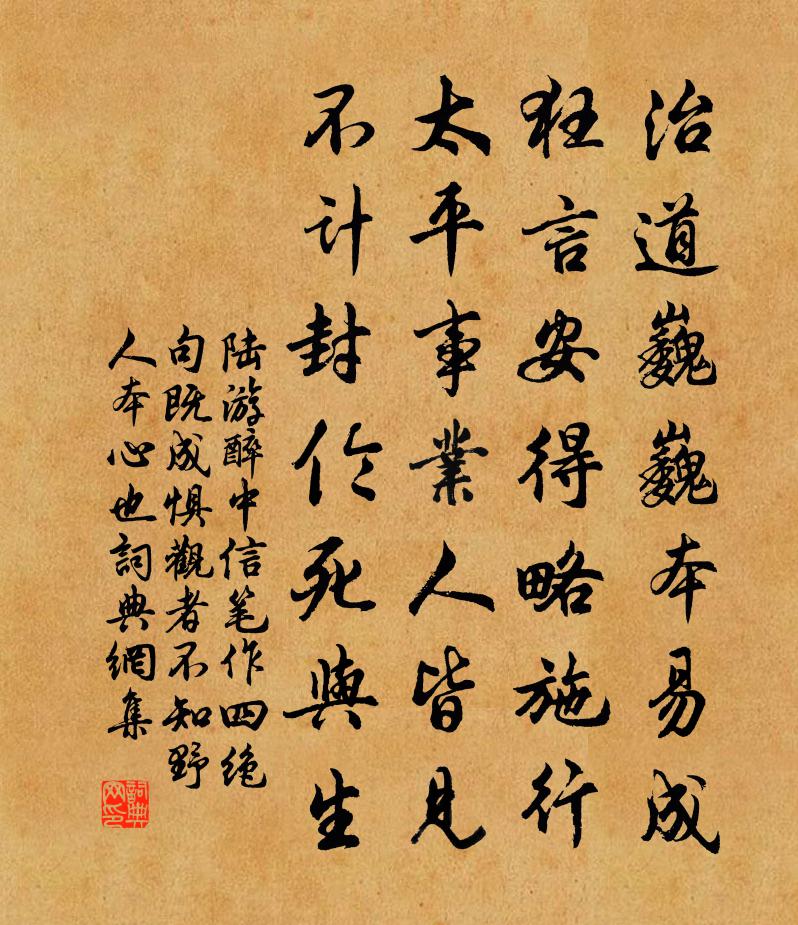 治道巍巍本易成
狂言安得略施行
太平事業人皆見
不计封伦死與生
陆游醉中信笔作四绝
句既成惧觀者不知野
人本心也詞典網集